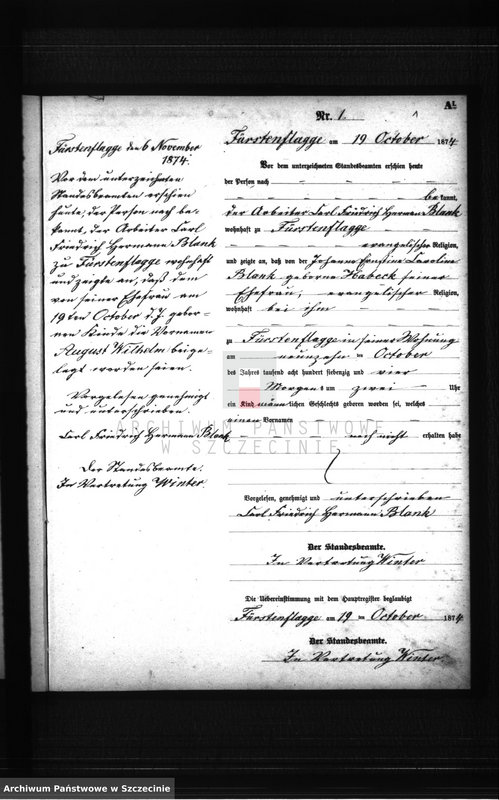 A¹.
Nr. 1
Fürstenflagge am 19 October 1874
Vor dem unterzeichneten Standesbeamten erschien heute
der Person nach
be kannt,
der Arbeiter Carl Friedrich Herman Blank
wohnhaft zu Fürstenflagge
evangelischer Religion,
und zeigte an, daß von der Johanne Caroline
Blank geborne Habeck seiner
Ehefrau, evangelischer Religion,
wohnhaft bei ihm
zu Fürstenflagge in seiner Wohnung
am neunzehn ten October
des Jahres tausend acht hundert siebenzig und vier
Morgens um zwei Uhr
ein Kind männlichen Geschlechts geboren worden sei, welches
einen Vornamen
noch nicht erhalten habe
Vorgelesen, genehmigt und unterschrieben
Carl Friedrich Hermann Blank
Der Standesbeamte.
In Vertretung Winter
Die Uebereinstimmung mit dem Hauptregister beglaubigt
Fürstenflagge am 19 ten October 1874
Der Standesbeamte.
In Vertretung Winter
Fürstenflagge den 6 November
1874.
Vor dem unterzeichneten
Standesbeamten erschien
heute, der Person nach be-
kannt, der Arbeiter Carl
Friedrich Hermann Blank
zu Fürstenflagge wohnhaft
und zeigte an, daß dem
von seiner Ehefrau am
19ten October d. J. gebor-
nen Kinde die Vornamen
August Wilhelm beige-
legt worden seien.
Vorgelesen genehmigt
und unterschrieben.
Carl Friedrich Hermann Blank
Der Standesbeamte.
In Vertretung Winter
ARCHIWUM PAŃSTWOWE
W SZCZECINIE
Archiwum Państwowe w Szczecinie